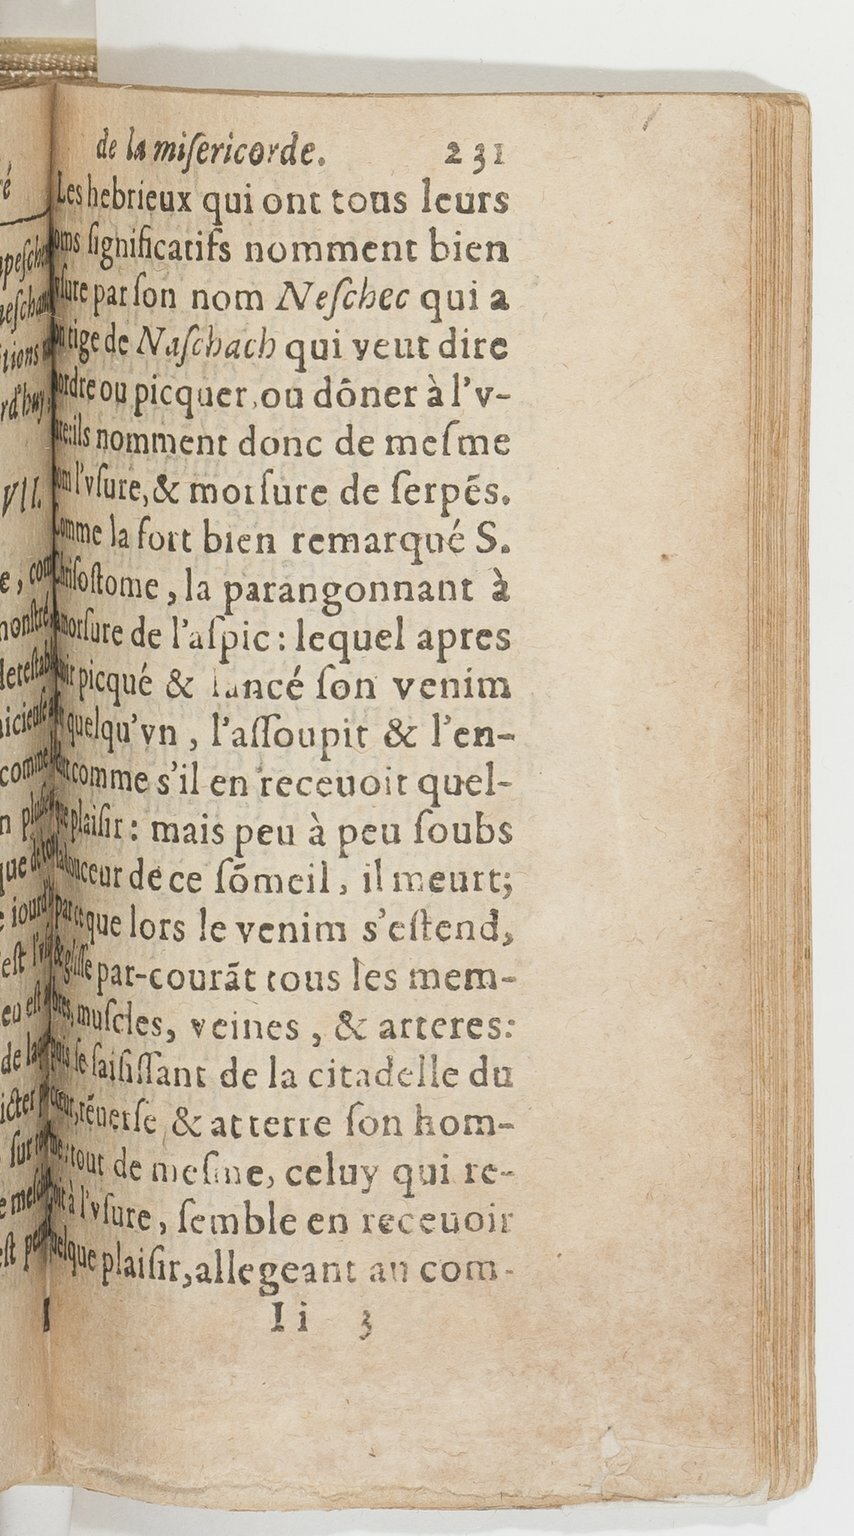 de la miſericorde. 231
Les hebrieux qui ont tous leurs
noms ſignificatifs nomment bien
l'vſure par ſon nom Neſchec qui a
tige de Naſchach qui veut dire
mordre ou picquer, ou dõner à l'v-
ils nomment donc de meſme
nom l'vſure, & morſure de ſerpẽs.
Comme la fort bien remarqué S.
Chriſoſtome, la parangonnant à
morſure de l'aſpic: lequel apres
picqué & lancé ſon venim
quelqu'vn, l'aſſoupit & l'en-
comme s'il en receuoit quel-
que plaiſir: mais peu à peu ſoubs
douceur de ce ſõmeil, il meurt;
parce que lors le venim s'eſtend,
& gliſſe par-courãt tous les mem-
bres, muſcles, veines, & arteres:
ſe ſaiſiſſant de la citadelle du
cœur, rẽuerſe & atterre ſon hom-
tout de meſme, celuy qui re-
à l'vſure, ſemble en receuoir
quelque plaiſir, allegeant au com-
Ii 3